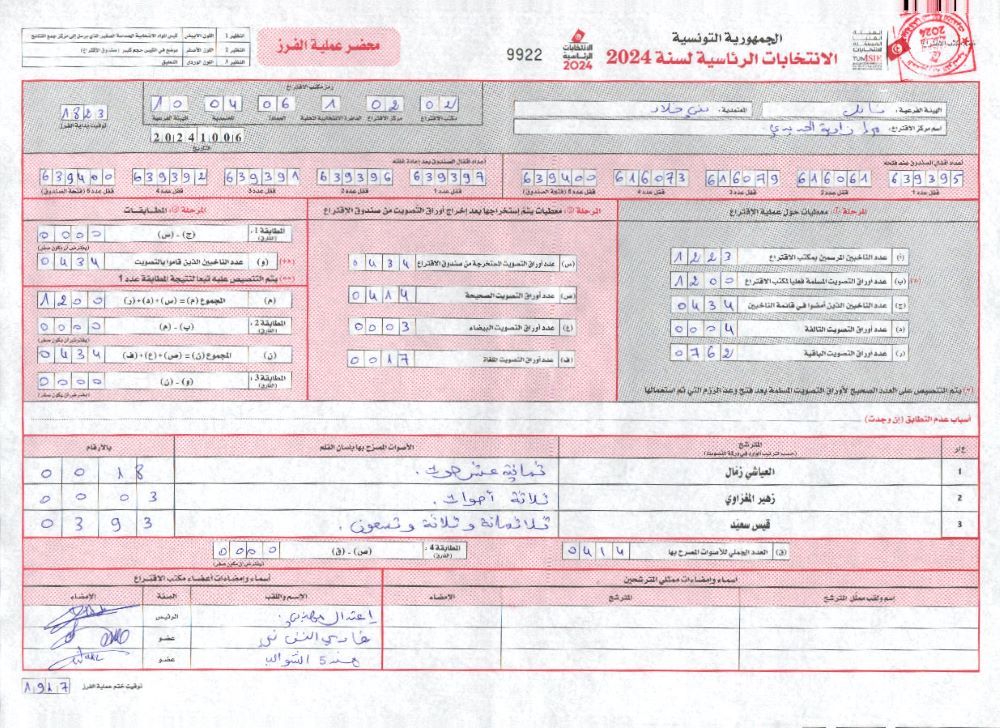 الجمهورية التونسية
الانتخابات الرئاسية لسنة 2024
الانتخابات الرئاسية 2024
9922
محضر عملية الفرز
النظير 1 اللون الأبيض كيس المواد الانتخابية الحساسة الصغير الذي يرسل إلى مركز جمع النتائج
النظير 2 اللون الأصفر يوضع في الكيس حجم كبير (صندوق الاقتراع)
النظير 3 اللون الوردي التعليق
الهيئة الفرعية : نابل
المعتمدية : بني خلاد
اسم مركز الاقتراع :
رمز مكتب الاقتراع
02 02 1 06 04 10
مكتب الاقتراع مركز الاقتراع الدائرة الانتخابية المحلية العمادة المعتمدية الهيئة الفرعية
20241006
التاريخ
1823
توقيت بداية الفرز
أعداد أقفال الصندوق عند فتحه
639395 616061 616079 616073 639400
قفل عدد 1 قفل عدد 2 قفل عدد 3 قفل عدد 4 قفل عدد 5 (فتحة الصندوق)
أعداد أقفال الصندوق بعد إعادة غلقه
639397 639396 639391 639392 639400
قفل عدد 1 قفل عدد 2 قفل عدد 3 قفل عدد 4 قفل عدد 5 (فتحة الصندوق)
المرحلة 1: معطيات حول عملية الاقتراع
(أ) عدد الناخبين المرسمين بمكتب الاقتراع 1223
(ب) عدد أوراق التصويت المسلمة فعليا لمكتب الاقتراع 1200 (*)
(ج) عدد الناخبين الذين أمضوا في قائمة الناخبين 0434
(د) عدد أوراق التصويت التالفة 0004
(ر) عدد أوراق التصويت الباقية 0762
(*) يتم التنصيص على العدد الصحيح لأوراق التصويت المسلمة بعد فتح وعد الرزم التي تم استعمالها
المرحلة 2: معطيات يتم إستخراجها بعد إخراج أوراق التصويت من صندوق الاقتراع
(س) عدد أوراق التصويت المتخرجة من صندوق الاقتراع 0434
(ص) عدد أوراق التصويت الصحيحة 0414
(ع) عدد أوراق التصويت البيضاء 0003
(ف) عدد أوراق التصويت الملغاة 0017
المرحلة 3: المطابقات
المطابقة 1 : (الفارق) (ج) - (س) 0000
(يفترض أن يكون صفر)
(و) عدد الناخبين الذين قاموا بالتصويت 0434 (**)
(**) يتم التنصيص عليه تبعا لنتيجة المطابقة عدد 1
(م) المجموع (م) = (س) + (د) + (ر) 1200
المطابقة 2 : (الفارق) (ب) - (م) 0000
(يفترض أن يكون صفر)
(ن) المجموع (ن) = (ص) + (ع) + (ف) 0434
المطابقة 3 : (الفارق) (و) - (ن) 0000
(يفترض أن يكون صفر)
أسباب عدم التطابق (إن وجدت)
ع/ر المترشح الأصوات المصرح بها بلسان القلم بالأرقام
(حسب الترتيب الوارد في ورقة التصويت)
1 العياشي زمال ثمانية عشر صوت. 0018
2 زهير المغزاوي ثلاثة أصوات. 0003
3 قيس سعيد ثلاثمائة وثلاثة وتسعون. 0393
(ق) العدد الجملي للأصوات المصرح بها 0414
المطابقة 4 : (الفارق) (ص) - (ق) 0000
(يفترض أن يكون صفر)
اسماء وإمضاءات ممثلي المترشحين
اسم ولقب ممثل المترشح المترشح الامضاء
أسماء وإمضاءات أعضاء مكتب الاقتراع
الإسم واللقب الصفة الإمضاء
الرئيس
عضو
عضو
توقيت ختم عملية الفرز 1917